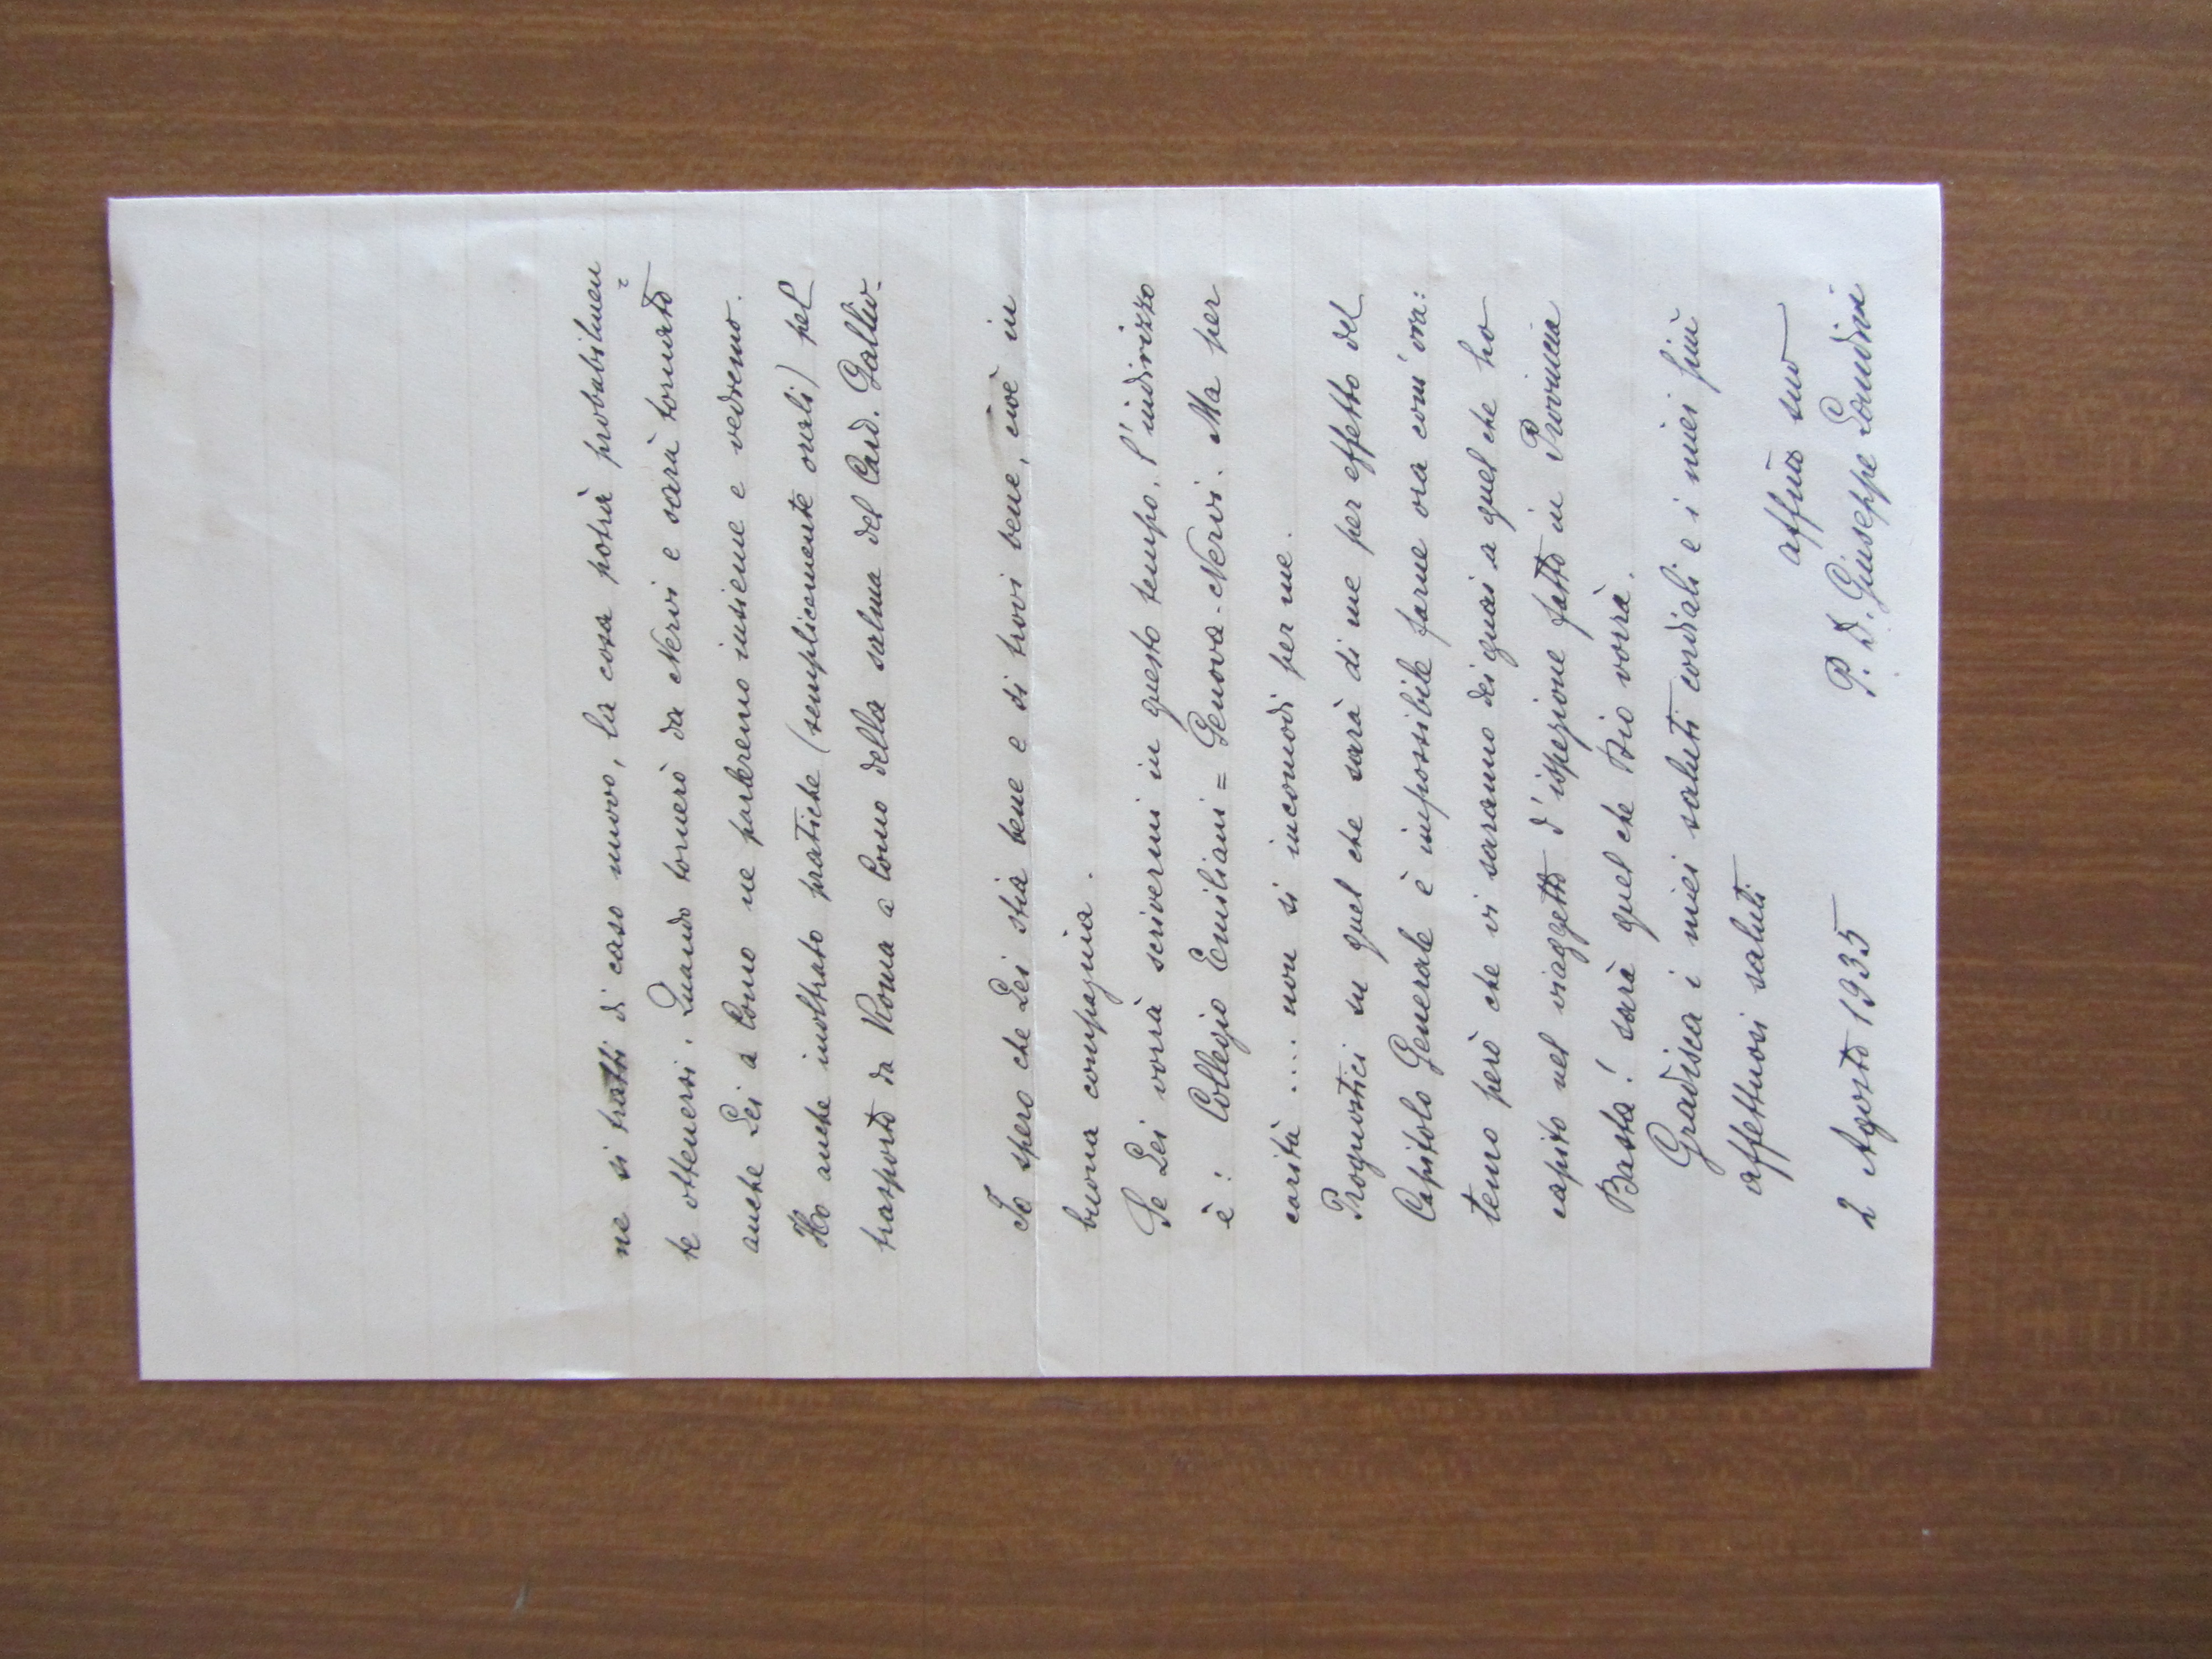 ne si tratti di caso nuovo, la cosa potrà probabilmen
te ottenersi. Quando tornerò da Nervi e sarà tornato
anche Lei a Como ne parleremo insieme e vedremo.
Ho anche inoltrato pratiche (semplicemente orali) pel
trasporto da Roma a Como della salma del Card. Gallio.
Io spero che Lei stia bene e si trovi bene, cioè in
buona compagnia.
Se Lei vorrà scrivermi in questo tempo, l'indirizzo
è: Collegio Emiliani = Genova-Nervi. Ma per
carità .... non si incomodi per me.
Prognostici su quel che sarà di me per effetto del
Capitolo Generale è impossibile farne ora com'ora:
temo però che vi saranno dei guai a quel che ho
capito nel viaggetto d'ispezione fatto in Provincia
Basta! sarà quel che Dio vorrà.
Gradisca i miei saluti cordiali e i miei più
affettuosi saluti
affmo suo
2 Agosto 1935 P. D. Giuseppe Landini